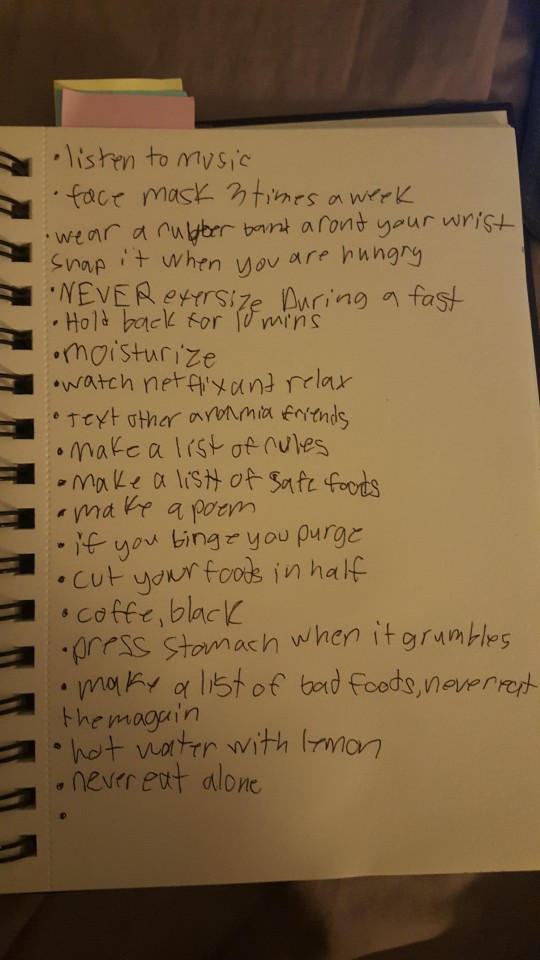 • listen to music
• face mask 3 times a week
• wear a rubber band aront your wrist
snap it when you are hungry
• NEVER exersize During a fast
• Hold back for 10 mins
• moisturize
• watch netflix and relax
• Text other ana/mia friends
• make a list of rules
• make a list of safe foods
• make a poem
• if you binge you purge
• cut your foods in half
• coffe, black
• press stomach when it grumbles
• make a list of bad foods, never eat
them again
• hot water with lemon
• never eat alone
•